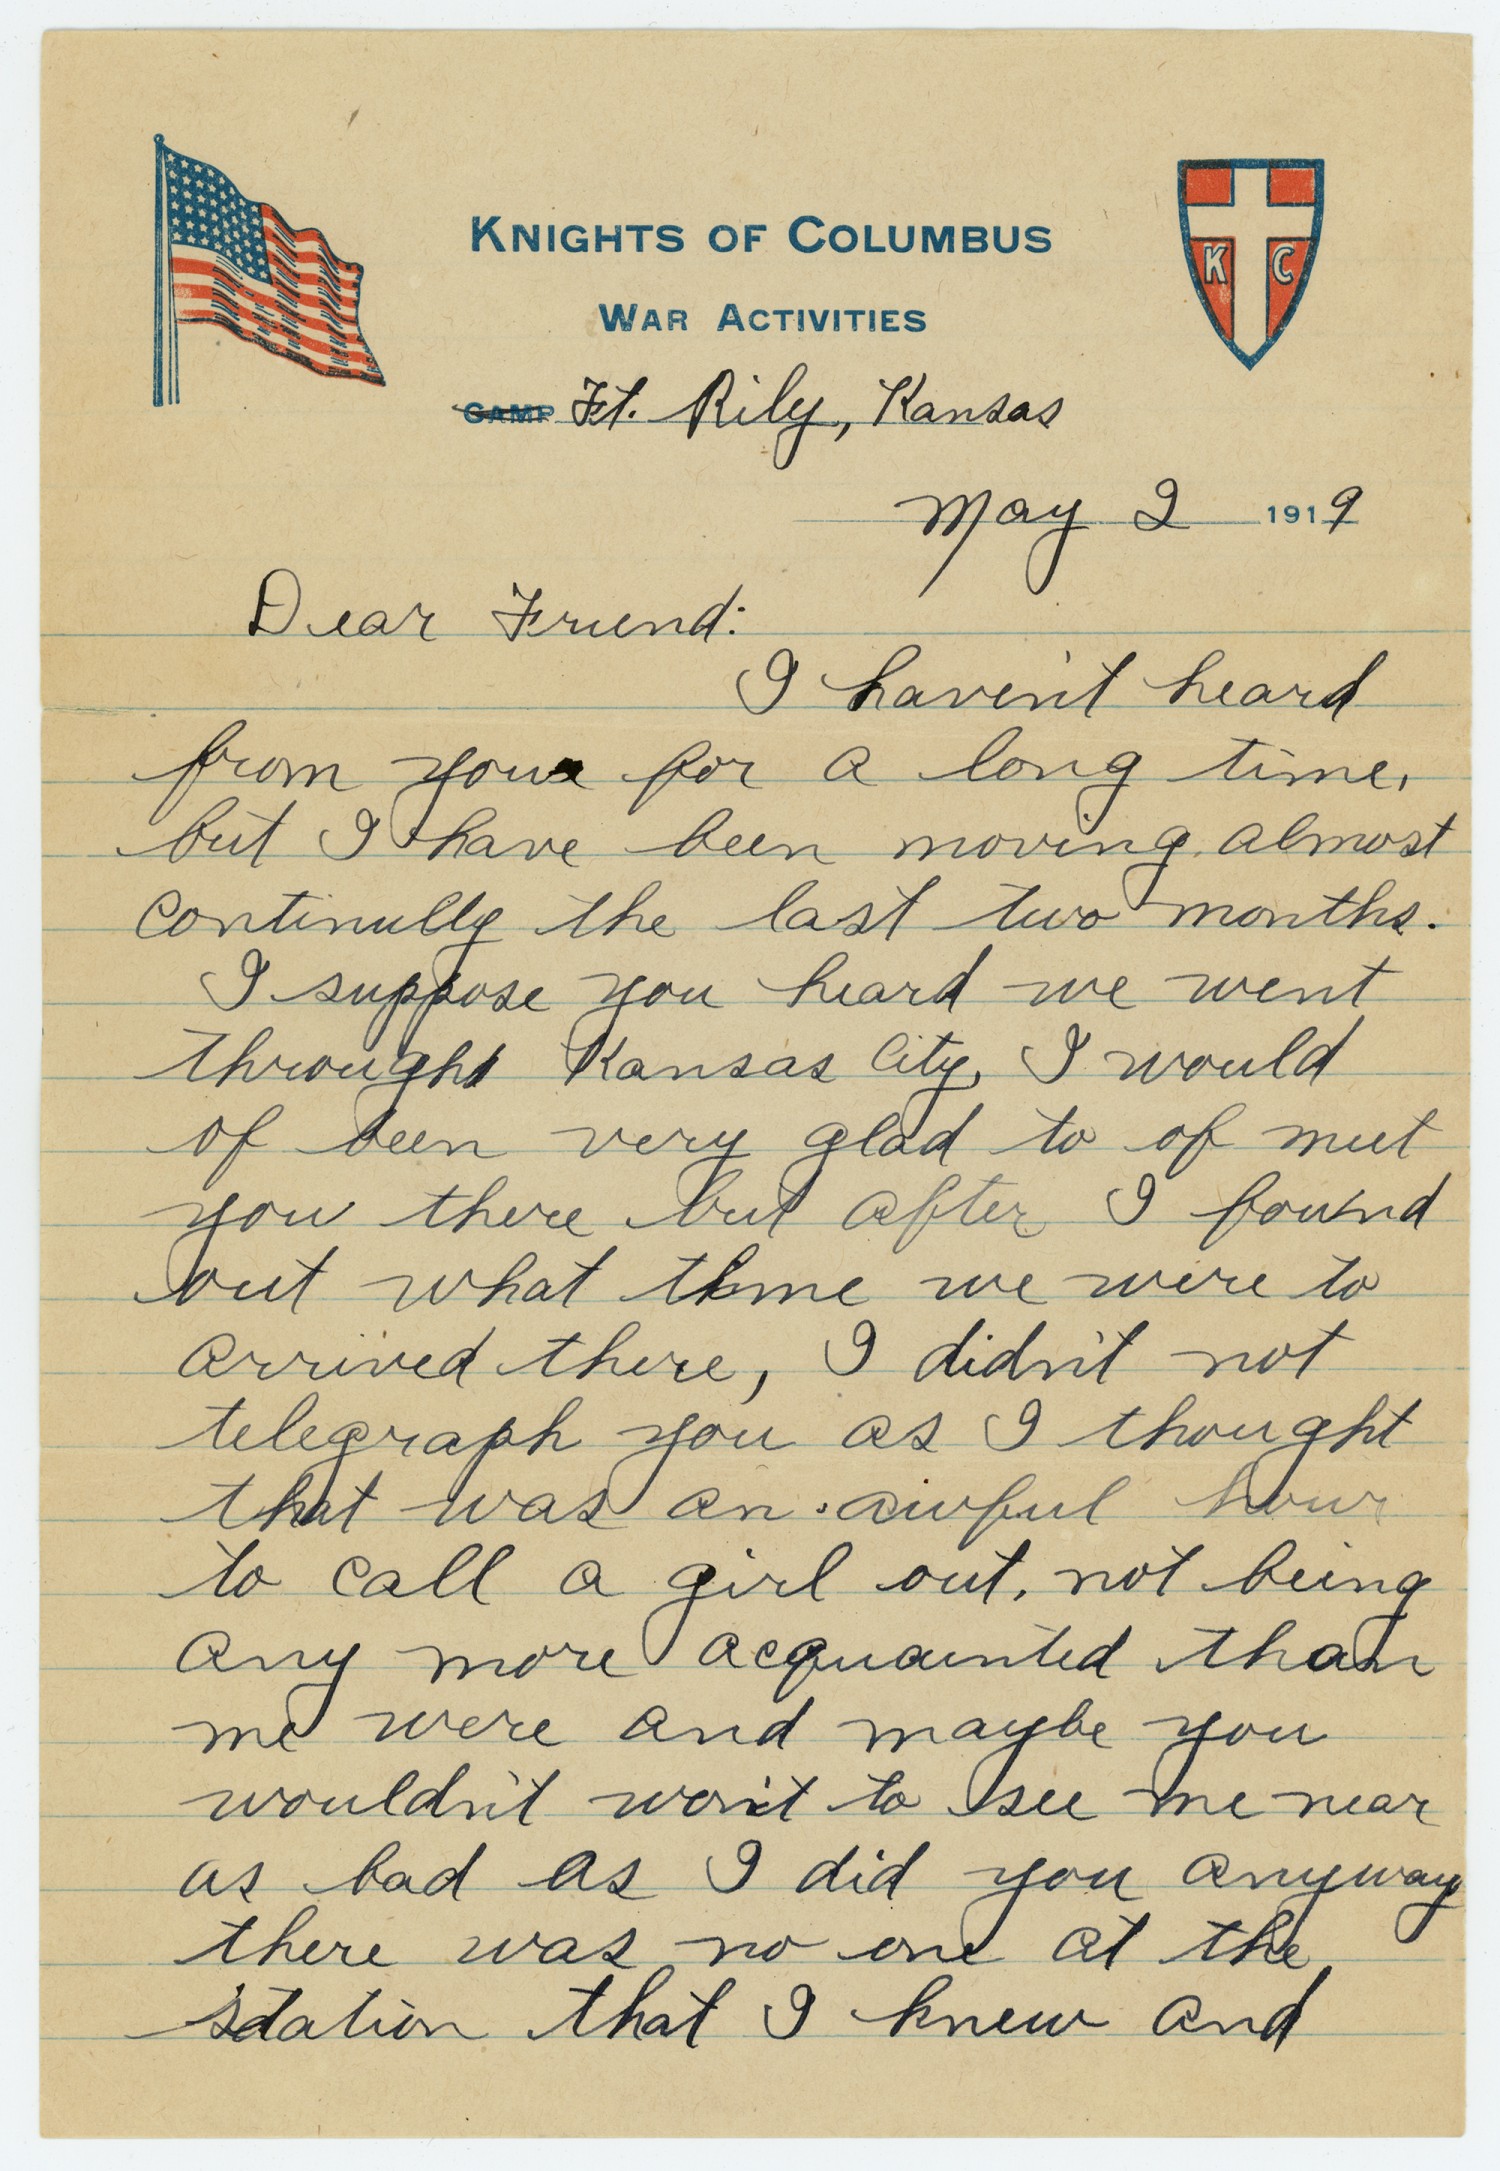 KNIGHTS OF COLUMBUS
WAR ACTIVITIES
K C
CAMP Ft. Rily, Kansas
May 2 1919
Dear Friend:
I haven't heard
from you for a long time,
but I have been moving almost
continully the last two months.
I suppose you heard we went
through Kansas City, I would
of been very glad to of meet
you there but after I found
out what time we were to
arrived there, I didn't not
telegraph you as I thought
that was an awful hour
to call a girl out, not being
any more acquainted than
me were and maybe you
wouldn't won't to see me near
as bad as I did you anyway
there was no one at the
station that I knew and